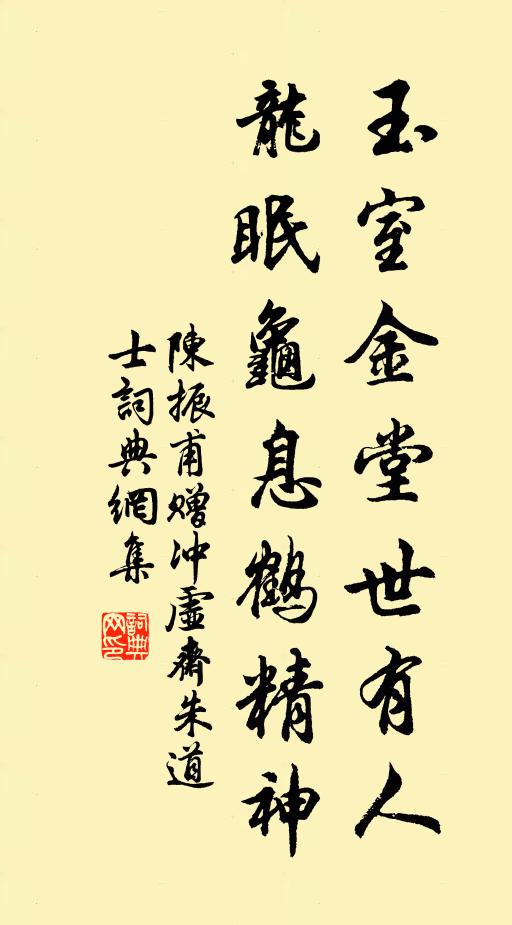 玉室金堂世有人
龍眠龜息鶴精神
陳振甫贈冲虛齋朱道
士詞典網集
詞典
网印